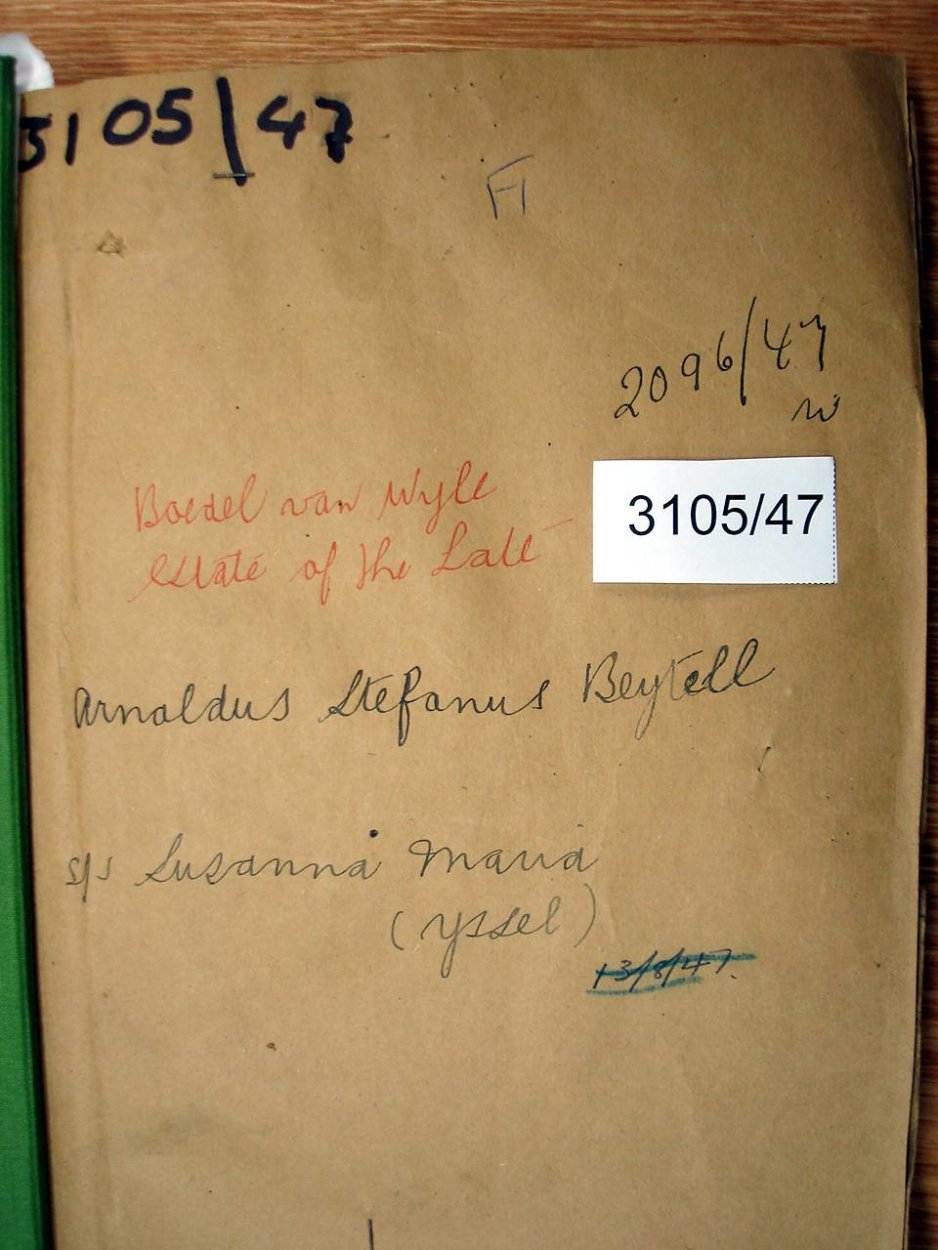 3105/47
F1
2096/47
Boedel van Wyle
Estate of the Late
3105/47
Arnoldus Stefanus Beytell
s/s Susanna Maria
(Yssel)
13/8/47.